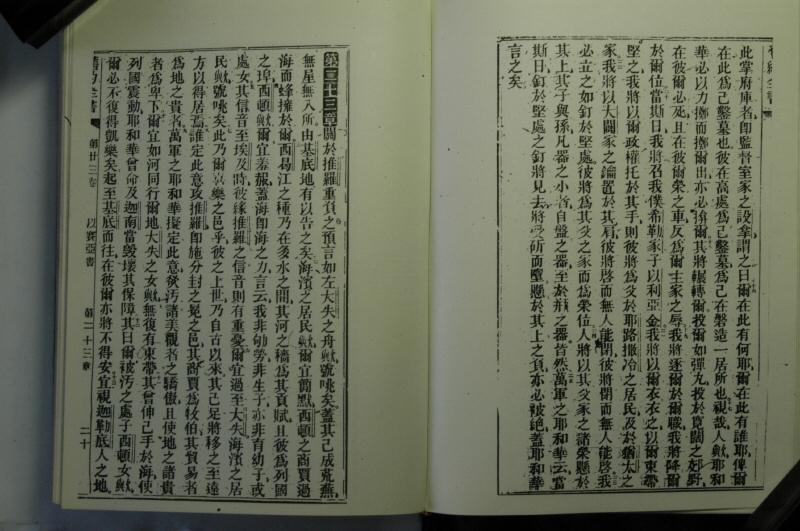 舊約全書
此掌府庫者卽監督室家之設拿謂之曰爾在此有何耶爾在此有誰耶俾爾
在此爲己鑿墓也彼在高處爲己鑿墓爲己在磐造一居所也視哉人歟耶和
華必以力擲而擲爾出亦必揜爾其將輾轉爾投爾如彈丸投於寬闊之郊野
在彼爾必死且在彼爾榮之車反爲爾主家之辱我將逐爾於爾職我將降爾
於爾位當斯日我將召我僕希勒家子以利亞金我將以爾衣衣之以爾束帶
堅之我將以爾政權托於其手則彼將爲父於耶路撒冷之居民及於猶太之
家我將以大闢家之鑰置於其肩彼將啓而無人能閉彼將閉而無人能啓我
必立之如釘於堅處彼將爲其父之家而爲榮位人將以其父家之諸榮懸於
其上其子與孫凡器之小者自盤之器至於瓶之器皆然萬軍之耶和華云當
斯日釘於堅處之釘將見去將受斫而墮懸於其上之負亦必被絕蓋耶和華
言之矣
第二十三章關於推羅重負之預言如左大失之舟歟號咷矣蓋其己成荒蕪
無屋無入所由基底地有以告之矣海濱之居民歟爾宜靜默西頓之商賈過
海而蜂擁於爾西曷江之種乃在多水之間其河之穡爲其貢賦且彼爲列國
之埠西頓歟爾宜羞赧蓋海卽海之力言云我非劬勞非生子亦非育幼子或
處女其信音至埃及時彼緣推羅之信音則有重憂爾宜過至大失海濱之居
民歟號咷矣此乃爾喜樂之邑乎彼之上世乃自古以來其己足將移之至遠
方以得居焉誰定此意攻推羅卽施分封之冕之邑其商賈爲牧伯其貿易者
爲地之貴者萬軍之耶和華擬定此意致汚諸美觀者之驕傲且使地之諸貴
者爲卑下爾宜如河同行爾地大失之女歟無復有束帶其曾伸己手於海使
列國震動耶和華曾命及迦南當毀壞其保障其曰爾被汚之處子西頓女歟
爾必不復得凱樂矣起至基底而往在彼爾亦將不得安宜視迦勒底人之地
舊約全書
第廿三卷
以賽亞書
第二十三章
二十